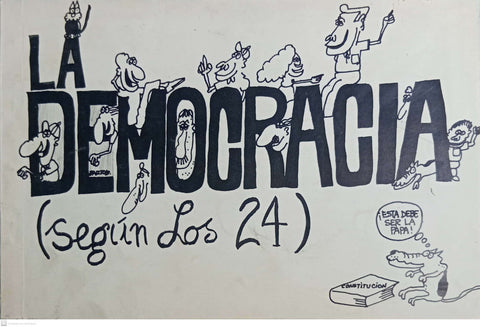 LA
DEMOCRACIA
(según Los 24)
¡ESTA DEBE
SER LA
PAPA!
CONSTITUCION